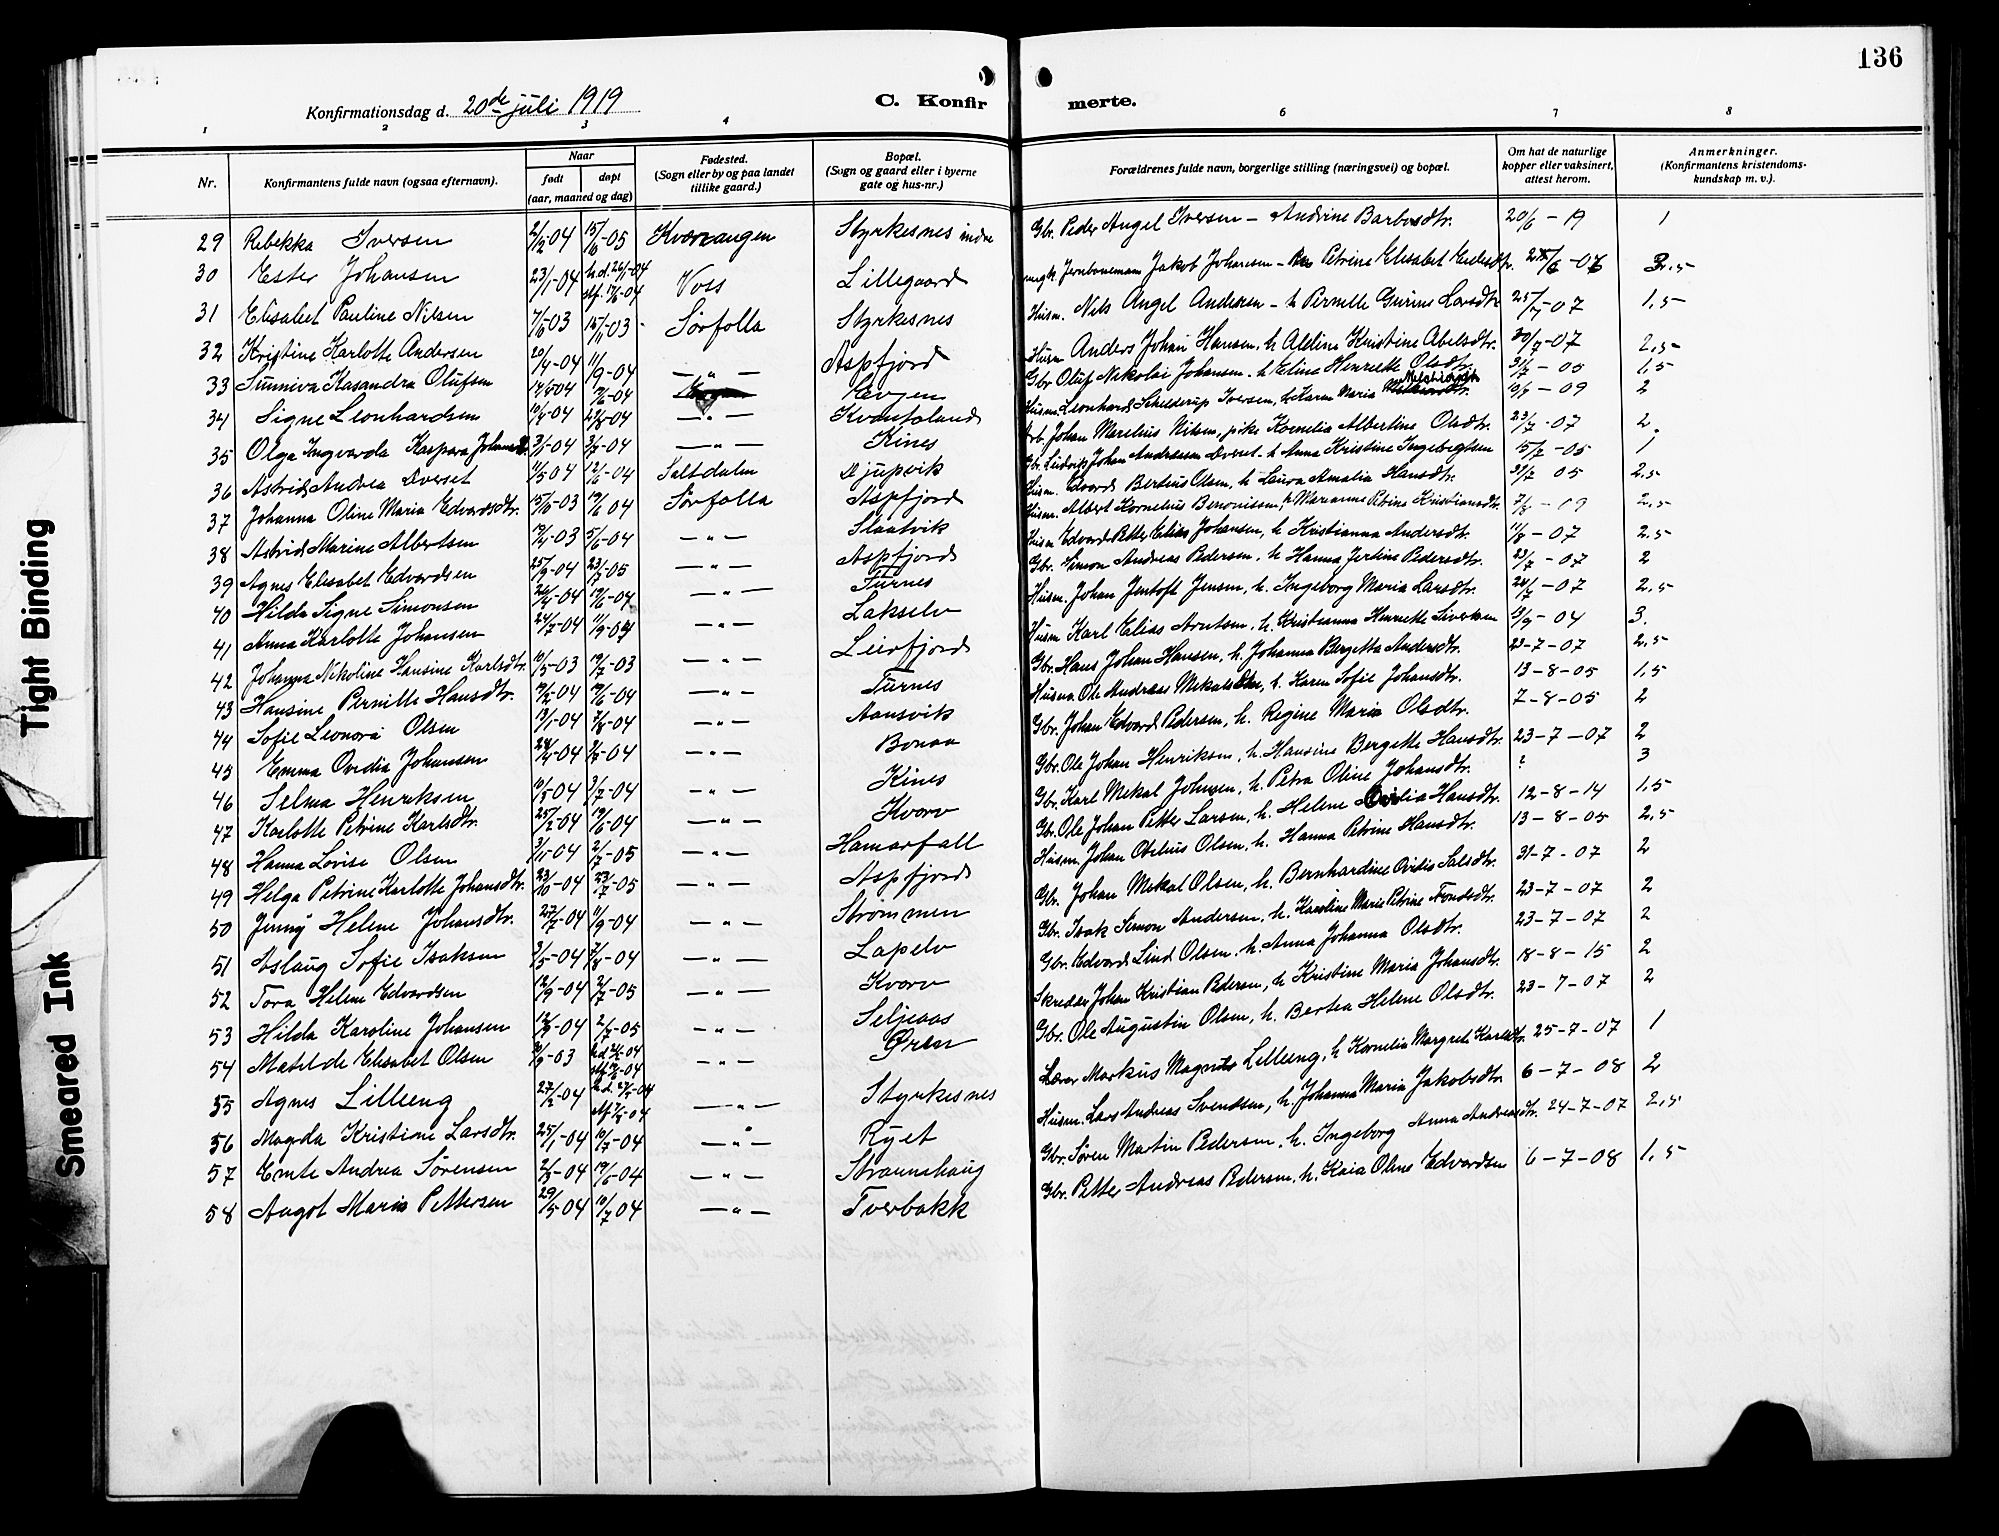 136
Konfirmationsdag d. 20de juli 1919
C. Konfirmerte.
1 2 3 4 6 7 8
Nr.
Konfirmantens fulde navn (ogsaa efternavn).
Naar
født døpt
(aar, maaned og dag)
Fødested.
(Sogn eller by og paa landet
tillike gaard.)
Bopæl.
(Sogn og gaard eller i byerne
gate og hus-nr.)
Forældrenes fulde navn, borgerlige stilling (næringsvei) og bopæl.
Om hat de naturlige
kopper eller vaksinert,
attest herom.
Anmerkninger.
(Konfirmantens kristendoms-
kundskap m. v.).
29 Rebekka Iversen 2/2-04 15/6-05 Kvænangen Styrkesnes indre Gbr. Peder Angel Iversen - Andrine Barbosdtr. 20/6-19 1
30 Ester Johansen 23/1-04 h.d. 26/1-04 stf. 17/6-04 Voss Lillegaard Jernbanemann Jakob Johansen - Petrine Elisabet 2.5
31 Elisabet Pauline Nilsen 7/6-03 15/11-03 Sørfolla Styrkesnes Husm. Nels Angel Andersen - h. Pernille Gurine Larsdtr 25/7-07 1,5
32 Kristine Karlotte Andersen 20/4-04 11/9-04 -"- Aspfjord Husm Anders Johan Hansen, h. Aldine Kristine Abelsdtr. 30/7-07 2,5
33 Sunniva Kasandra Olufsen 14/5-04 19/6-04 Gbr. Oluf Nikolai Johansen - h. Elina Henriette Olsdtr. 31/7-05 1,5
34 Signe Leonhardsen 10/4-04 28/8-04 -"- Kvantoland Husm. Leonhard Schelderup Iversen, h. Karen Maria 10/7-09 2
35 Olga Ingvarda Kaspara Johansdtr. 3/1-04 3/7-04 -"- Kines Arb. Johan Marelius Nilsen, pike Kornelia Albertine Olsdtr. 23/7-07 2.
36 Astrid Andrea Øverset 11/5 04 12/6-04 Saltdalen Djupvik Gbr. Ludvik Johan Andreassen Øverset - h. Anna Kristine Ingebrigtsen 15/7-05 1
37 Johanna Oline Maria Edvardsdtr. 15/10-03 19/6 04 Sørfolla Aspfjord Husm. Edvard Bertius Olsen, h. Laura Amalia Hansdtr. 31/7 05 2.5
38 Astrid Marine Albertsen 19/4-03 5/6-04 -"- Slaatvik Husm. Albert Kornelius Benonisen, h. Marianne Petrine Kristiansdtr. 7/8-09 2.5
39 Agnes Elisabet Edvardsen 25/9-04 23/7-05 -"- Aspfjord Husm Edvard Petter Elias Johansen, h. Kristianna Andersdtr. 11/8-07 2.5
40 Hilda Signe Simonsen 26/4-04 19/6-04 -"- Furnes Gbr. Simon Andreas Pedersen, h. Hanna Jertine Pedersdtr. 23/7-07 2
41 Anna Karlotte Johansen 24/7-04 11/9-04 -"- Lakselv Husm. Johan Jentoft Jensen, h. Ingeborg Maria Larsdtr. 24/7-07 2,5
42 Johanna Nikoline Hansine Karlsdtr. 10/5-03 19/7-03 -"- Leirfjord Husm Karl Elias Arntsen, h. Kristianna Henriette Sivertsen 13/9-04 3.
43 Hansine Pernille Hansdtr. 19/2-04 19/6-04 -"- Furnes Gbr. Hans Johan Hansen, h. Johanna Bergetta Andersdtr. 23-7-07 2.5
44 Sofie Leonora Olsen 13/1-04 7/8-04 -"- Aansvik Husm Ole Andreas Mekalsen, h. Karen Sofie Johansdtr. 13-8-05 1,5
45 Emma Ovidia Johansen 24/4-04 3/7-04 -"- Bonaa Gbr. Johan Edvard Pedersen, h. Regine Maria Olsdtr. 7-8-05 2
46 Selma Henriksen 10/3-04 3/7-04 -"- Kines Gbr. Ole Johan Henriksen, h. Hansine Bergette Hansdtr. 23-7-07 2
47 Karlotte Petrine Karlsdtr. 25/2-04 19/6-04 -"- Kvarv Gbr. Karl Mekal Johnsen, h. Petra Oline Johansdtr. ? 3
48 Hanna Lovise Olsen 3/11-04 2/7-05 -"- Hamarfall Gbr. Ole Johan Petter Larsen, h. Helene Ovidia Hansdtr. 12-8-14 1.5
49 Helga Petrine Karlotte Johansdtr. 23/10-04 23/7-05 -"- Aspfjord Husm. Johan Obelius Olsen, h. Hanna Petrine Hansdtr. 13-8-05 2,5
50 Jenny Helene Johansdtr. 27/7-04 11/9-04 -"- Strømmen Gbr. Johan Mekal Olsen, h. Bernhardine Ovidie Salsdtr. 31-7-07 2
51 Aslaug Sofie Isaksen 3/5-04 7/8-04 -"- Lapelv Gbr. Isak Simon Andersen, h. Karoline Marie Petrine 23-7-07 2
52 Tora Helene Edvardsen 12/9-04 2/7-05 -"- Kvarv Gbr. Edvard Lind Olsen, h. Anna Johanna Olsdtr. 23-7-07 2
53 Hilda Karoline Johansen 12/8-04 2/7-05 -"- Seljeaas Skredder Johan Kristian Pedersen, h Kristine Maria Johansdtr. 18-8-15 2
54 Matilde Elisabet Olsen -03 h.d. -04 stf. -04 -"- Øren Gbr. Ole Augustin Olsen, h. Bertea Helene Olsdtr. 23-7-07 2
55 Agnes Lilleeng 27/2-04 h.d. -04 stf. 7/8-04 -"- Styrkesnes Lærer Markus Magnus Lilleeng, h. Kornelia Margrete Karlsdtr. 25-7-07 1
56 Magda Kristine Larsdtr. 25/1-04 10/7-04 -"- Ryet Husm. Lars Andreas Svendsen, h. Johanna Maria Jakobsdtr 6-7-08 2
57 Emte Andrea Sørensen 2/3-04 19/6-04 -"- Straumshaug Gbr. Søren Martin Pedersen, h. Ingeborg Anna Andreasdtr. 24-7-07 2,5
58 Aagot Maria Pettersen 29/5 04 10/7 04 -"- Tverbakk Gbr. Petter Andreas Pedersen, h. Kaia Oline Edvardsen 6-7-08 1,5
Tight Binding
Smeared Ink